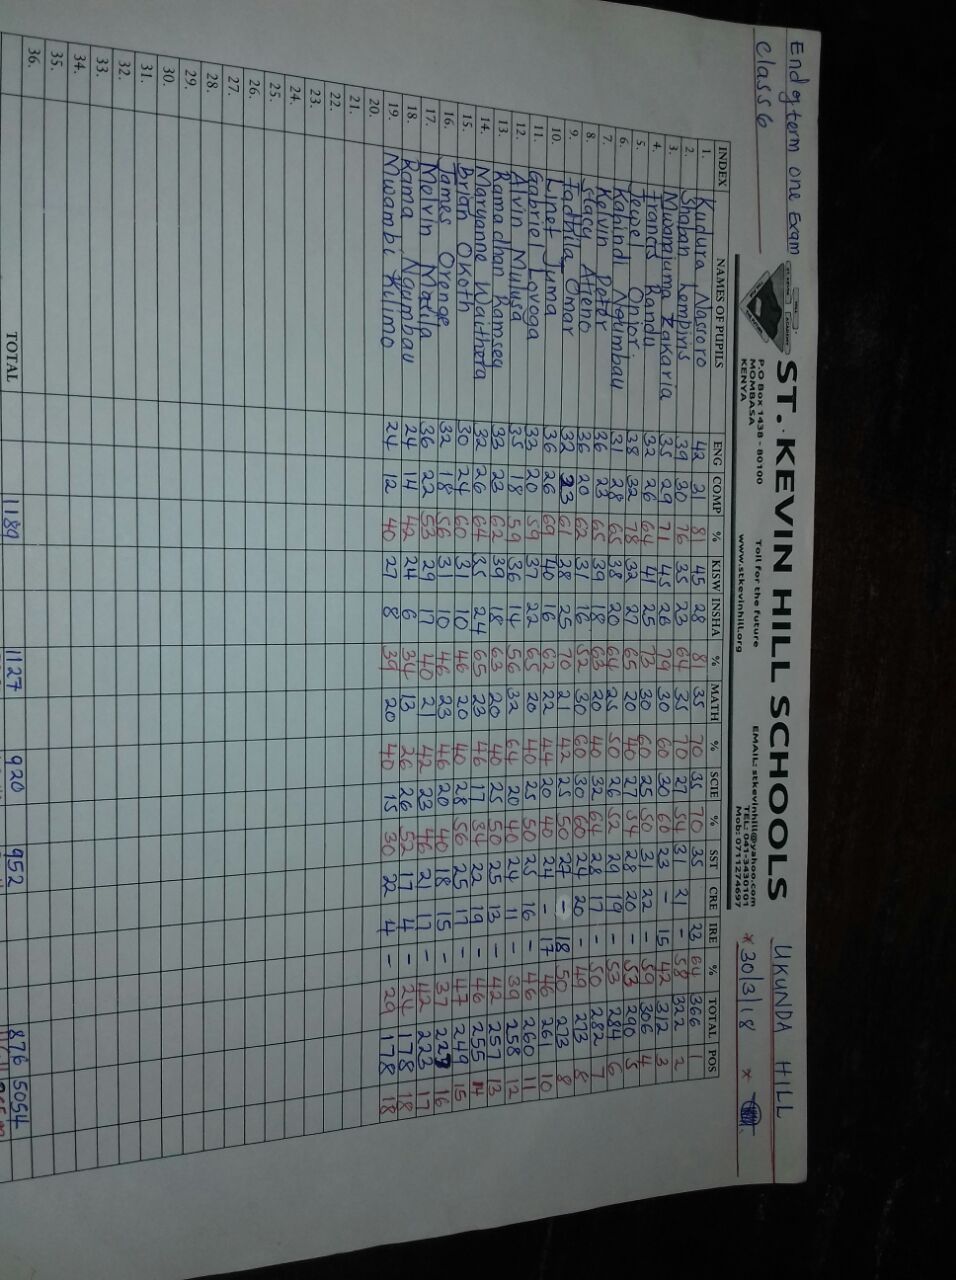 End of term one Exam
Class 6
ST. KEVIN HILL SCHOOLS
P.O Box 1438 - 80100
MOMBASA
KENYA
Toll for the future
www.stkevinhill.org
EMAIL: stkevinhill@yahoo.com
TEL: 041-3430101
Mob: 0711274697
UKUNDA HILL
* 30/3/18 *
INDEX NAMES OF PUPILS ENG COMP % KISW INSHA % MATH % SCIE % SST CRE IRE % TOTAL POS
1. Kudura Nassoro 42 31 81 45 28 81 35 70 35 70 35 23 64 366 1
2. Shaban Lempiris 39 30 76 35 23 64 35 70 27 54 31 21 - 58 322 2
3. Mwanajuma Zakaria 35 29 71 45 26 79 30 60 30 60 23 - 15 42 312 3
4. Francs Randu 32 26 64 41 25 73 30 60 25 50 31 22 - 59 306 4
5. Jewel Onjor 38 32 78 32 27 65 20 40 27 54 28 20 - 53 290 5
6. Kahindi Ngumbau 31 28 65 38 20 64 25 50 26 52 29 19 - 53 284 6
7. Kelvin Peter 36 23 65 39 18 63 20 40 32 64 28 17 - 50 282 7
8. Stacy Atieno 36 20 62 31 16 52 30 60 30 60 24 20 - 49 273 8
9. Fadhila Omar 32 23 61 28 25 70 21 42 25 50 27 - 18 50 273 8
10. Linet Juma 36 26 69 40 16 62 22 44 20 40 24 - 17 46 261 10
11. Gabriel Lovoga 33 20 59 37 22 65 20 40 25 50 25 16 - 46 260 11
12. Alvin 35 18 59 36 14 56 32 64 20 40 24 11 - 39 258 12
13. Ramadhan Ramsey 33 23 62 39 18 63 20 40 25 50 25 13 - 42 257 13
14. Maryanne Waithera 32 26 64 35 24 65 23 46 17 34 22 19 - 46 255 14
15. Brian Okoth 30 24 60 31 10 46 20 40 28 56 25 17 - 47 249 15
16. James Orenge 32 18 56 31 10 46 23 46 20 40 18 15 - 37 16
17. Melvin 36 22 53 29 17 40 21 42 23 46 21 17 - 42 223 17
18. Rama Ngumbau 24 14 42 24 6 34 13 26 26 52 17 4 - 24 178 18
19. Mwambi Kilimo 24 12 40 27 8 39 20 40 15 30 22 4 - 29 178 18
20.
21.
22.
23.
24.
25.
26.
27.
28.
29.
30.
31.
32.
33.
34.
35.
36.
TOTAL 1189 1127 920 952 876 5054